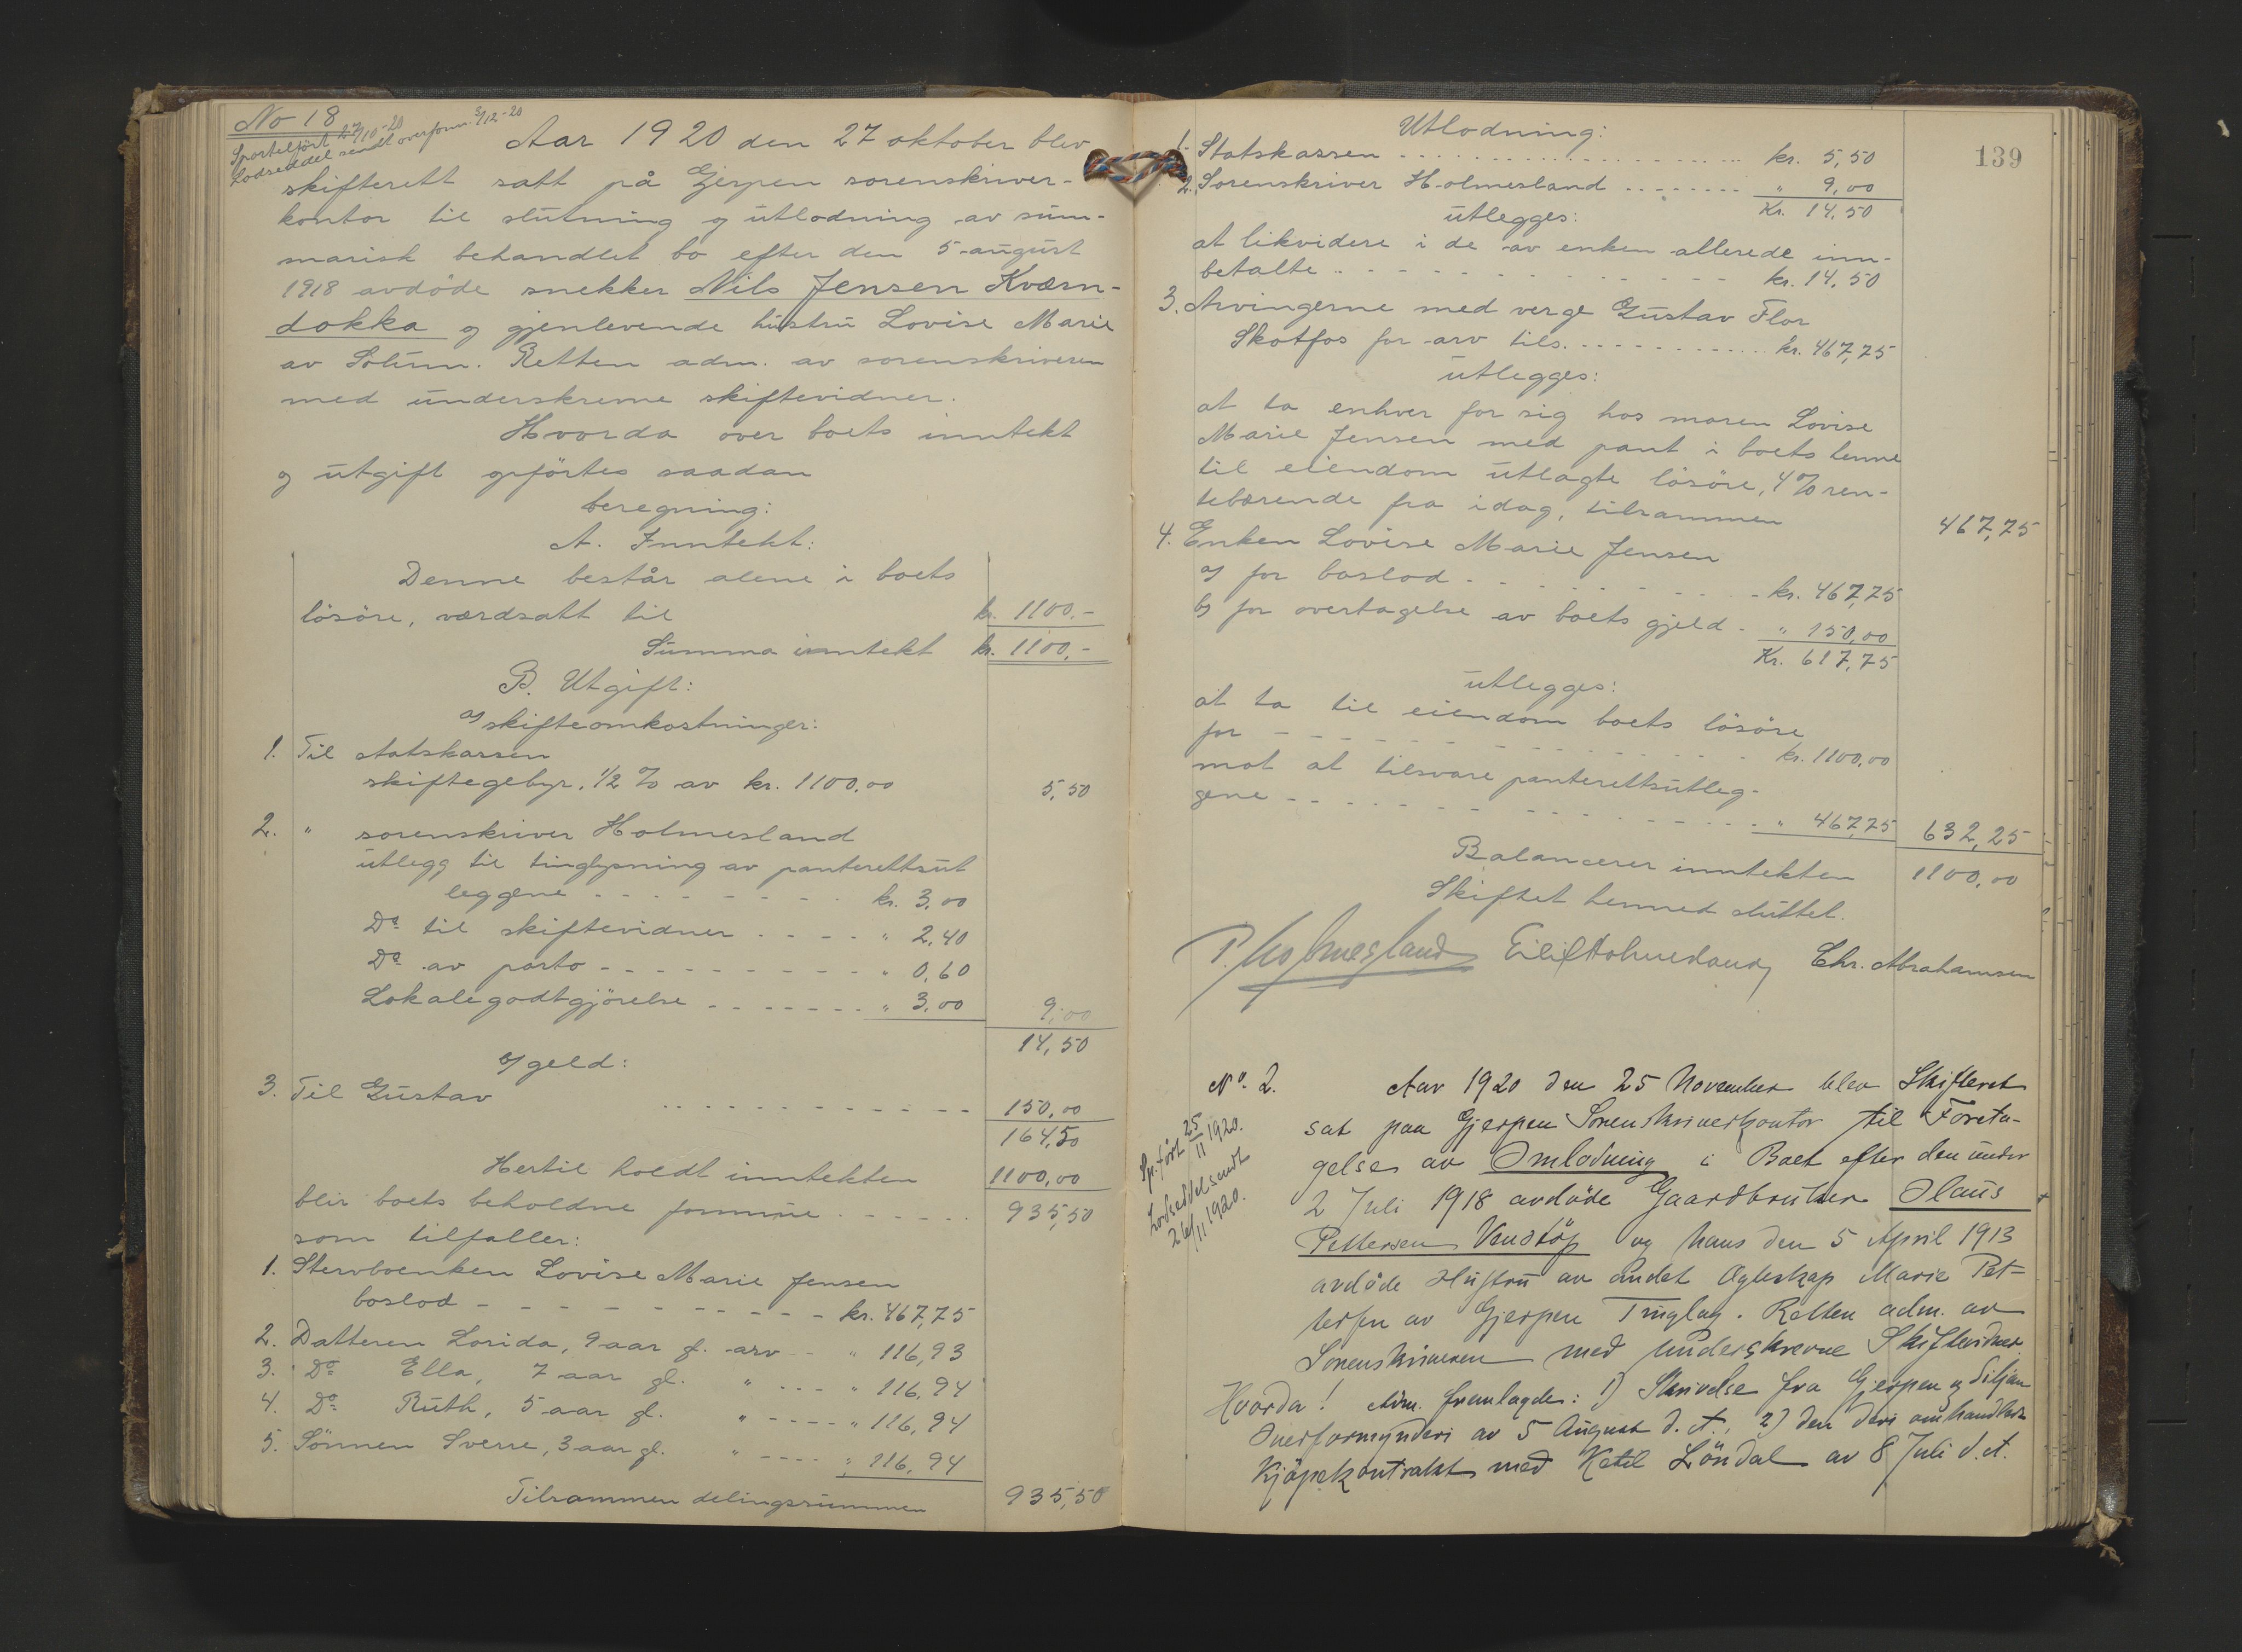 No 18
Sportelført 27/10-20
Lodseddel sendt overform. 3/12-20
Aar 1920 den 27 oktober blev
skifterett satt på Gjerpen sorenskriver-
kontor til slutning og utlodning av sum-
marisk behandlet bo efter den 5 august
1918 avdöde snekker Nils Jensen Kværn-
dokka og gjenlevende hustru Lovise Marie
av Solum. Retten adm. av sorenskriveren
med underskrevne skiftevidner.
Hvorda over boets inntekt
og utgift opførtes saadan
beregning:
A. Inntekt:
Denne består alene i boets
lösöre, værdsatt til kr. 1100.-
Summa inntekt kr. 1100.-
B. Utgift:
a) skifteomkostninger:
1. Til statskassen
skiftegebyr. 1/2 % av kr. 1100.00 5,50
2. " sorenskriver Holmesland
utlegg til tinglysning av panterettsut
leggene kr. 3,00
Do til skiftevidner " 2,40
Do av porto " 0,60
Lokalegodtgjörelse " 3,00 9,00
14,50
b) geld:
3. Til Gustav 150,00
164,50
Hertil holdt inntekten 1100,00
blir boets beholdne formue 935,50
som tilfaller:
1. Stervboenken Lovise Marie Jensen
boslod kr. 467,75
2. Datteren Lorida, 9 aar gl. arv " 116,93
3. Do Ella, 7 aar gl. " " 116,94
4. Do Ruth, 5 aar gl. " " 116,94
5. Sönnen Sverre, 3 aar gl. " " 116,94
Tilsammen delingssummen 935,50
139
Utlodning:
1. Statskassen kr. 5,50
2. Sorenskriver Holmesland " 9,00
Kr. 14,50
utlegges:
at likvidere i de av enken allerede inn-
betalte kr. 14,50
3. Arvingerne med verge Gustav Flor
Skotfos for arv tils. kr. 467,75
utlegges:
at ta enhver for sig hos moren Lovise
Marie Jensen med pant i boets henne
til eiendom utlagte lösöre, 4 % ren-
tebærende fra idag, tilsammen 467,75
4. Enken Lovise Marie Jensen
a) for boslod kr. 467,75
b) for overtagelse av boets gjeld " 150,00
Kr. 617,75
utlegges:
at ta til eiendom boets lösöre
for kr. 1100,00
mot at tilsvare panterettsutleg-
gene " 467,75 632,25
Balancerer inntekten 1100,00
Skiftet hermed sluttet.
P. Holmesland Eilif Holmesland Chr. Abrahamsen
No. 2.
Sp. ført 25/11 1920.
Lodseddel sendt
26/11 1920.
Aar 1920 den 25 November blev Skifteret
sat paa Gjerpen Sorenskriverkontor til Foreta-
gelse av Omlodning i Boet efter den under
2 Juli 1918 avdöde Gaardbruker Olaus
Pettersen Venstöp og hans den 5 April 1913
avdöde Hustru av andet Ægteskap Marie Pet=
tersen av Gjerpen Tinglag. Retten adm. av
Sorenskriveren med underskrevne Skiftevidner.
Hvorda! Adm. fremlagde: 1) Skrivelse fra Gjerpen og Siljan
Overformynderi av 5 August d. A., 2) den deri omhandlede
Kjöpekontrakt med Ketil Löndal av 8 Juli d. A.